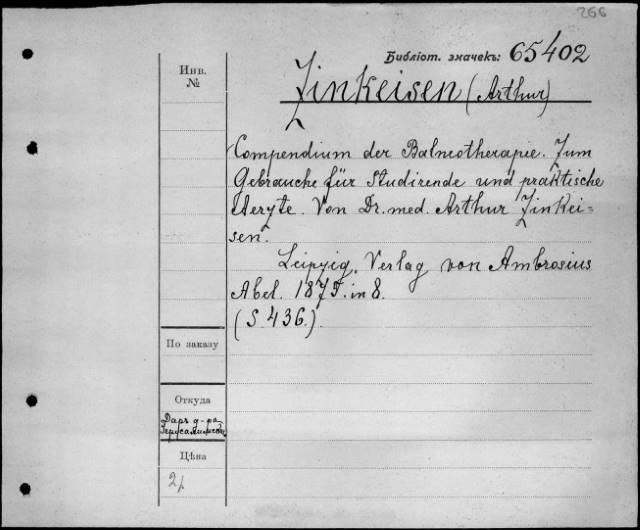 266
Библіот. значекъ: 65402
Инв.
№
Zinkeisen (Arthur)
Compendium der Balneotherapie. Zum
Gebrauche für Studirende und praktische
Aerzte. Von Dr. med. Arthur Zinkei=
sen.
Leipzig, Verlag von Ambrosius
Abel. 1875. in 8.
(S. 436.)
По заказу
Откуда
Даръ д-ра
Цѣна
2р